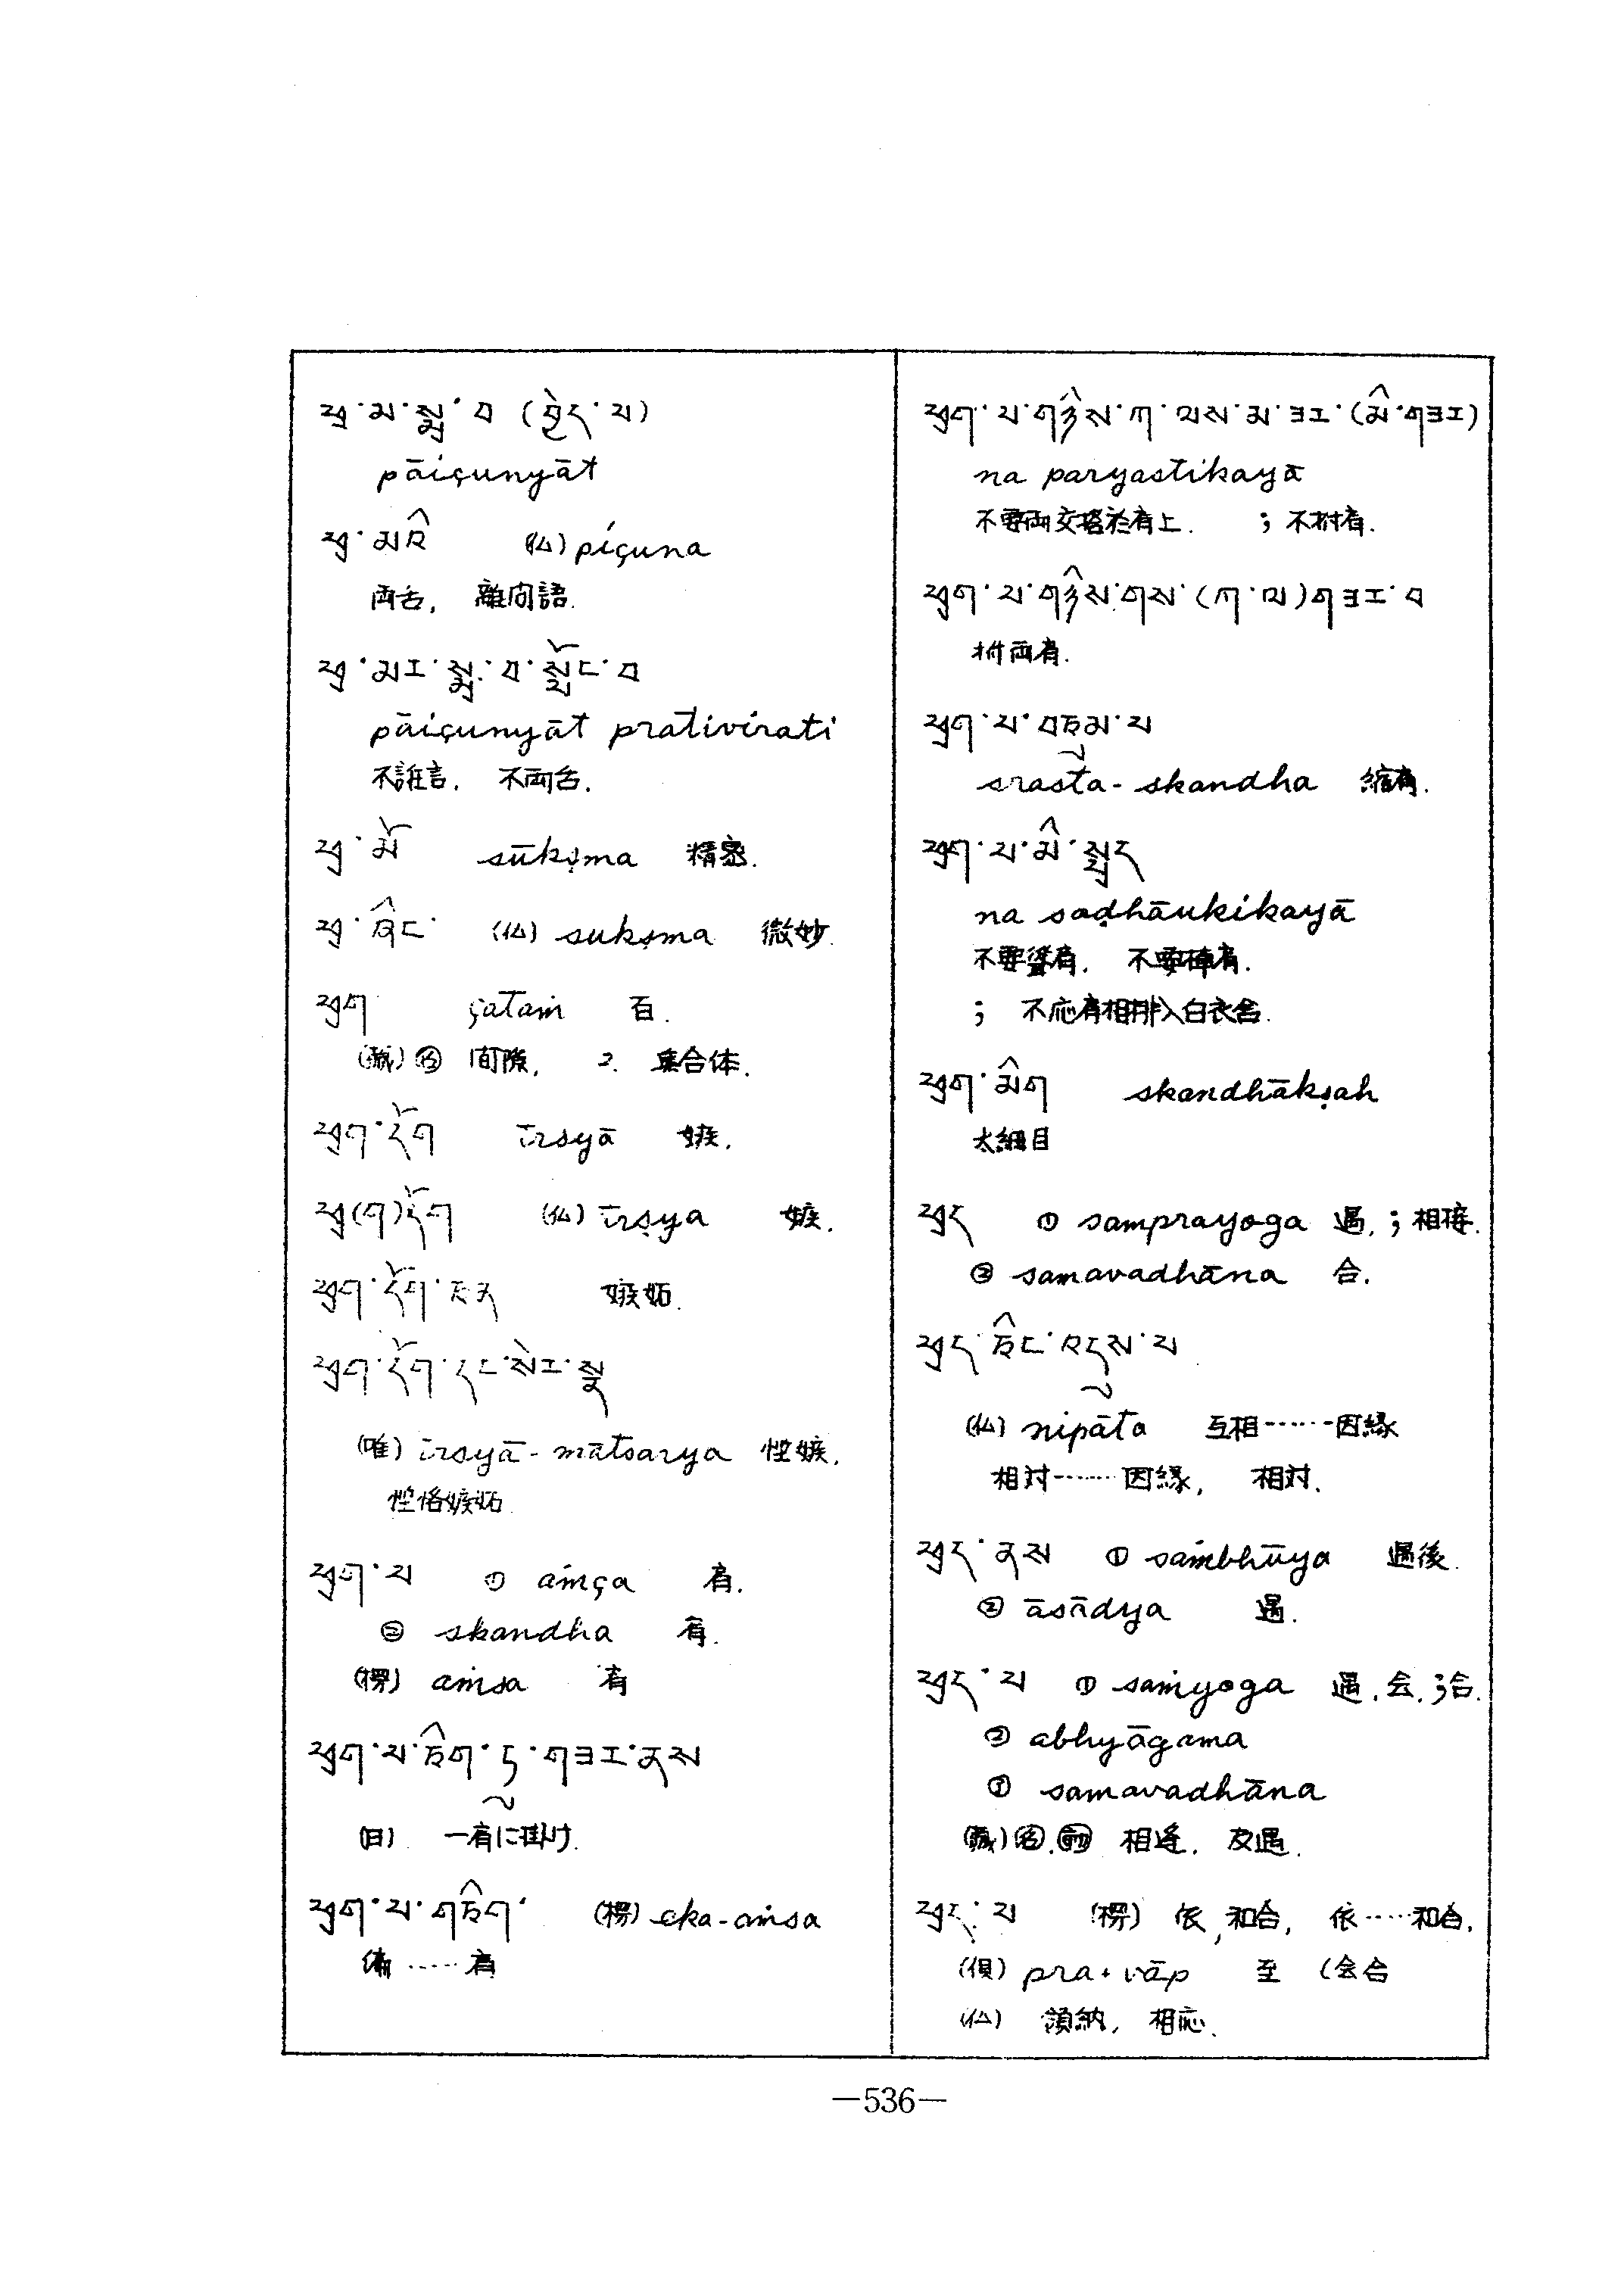 ཕྲ་མ་སྨྲ་བ (བྱེད་པ)
pāiçunyāt
ཕྲ་མའི (仏) piçuna
両舌, 離間語.
ཕྲ་མར་སྨྲ་བ་སྤོང་བ
pāiçunyāt prativirati
不誑言. 不両舌.
ཕྲ་མོ sūkṣma 精密.
ཕྲ་ཞིང་ (仏) sukṣma 微妙.
ཕྲག çataṁ 百.
(蔵) 間隙, 2. 集合体.
ཕྲག་དོག īrsyā 嫉.
ཕྲ(ག)དོག (仏) īrṣya 嫉.
ཕྲག་དོག་ཅན 嫉妬.
ཕྲག་དོག་དང་སེར་སྣ
(唯) īrsyā-mātsarya 慳嫉.
慳悋嫉妬.
ཕྲག་པ ① aṁça 肩.
② skandha 肩.
(楞) aṁsa 肩
ཕྲག་པ་ཅིག་ཏུ་གཟར་ནས
(日) 一肩に掛け.
ཕྲག་པ་གཅིག་ (楞) eka-aṁsa
偏……肩
ཕྲག་པ་གཉིས་ཀ་ལས་མ་ཟར་(མི་གཟར)
na paryastikayā
不要両交搭於肩上. ; 不拊肩.
ཕྲག་པ་གཉིས་གས་(ཀ་ལ)གཟར་བ
拊両肩.
ཕྲག་པ་བཅུམ་པ
srasta-skandha 縮肩.
ཕྲག་པ་མི་སྤྲད
na soḍhāukikayā
不要肩. 不要肩.
; 不応肩相排入白衣舎.
ཕྲག་མིག skandhākṣah
太細目
ཕྲད ① samprayoga 遇, ; 相接.
② samavadhāna 合.
ཕྲད་ཅིང་འདུས་པ
(仏) nipāta 互相……因縁
相対……因縁, 相対.
ཕྲད་ནས ① saṁbhūya 遇後.
② āsādya 遇.
ཕྲད་པ ① saṁyoga 遇. 会. ; 合.
② abhyāgama
③ samavadhāna
(蔵) 名. 相逢. 友遇.
ཕྲད་པ (楞) 依, 和合, 依……和合.
(倶) pra+vāp 至 (会合
(仏) 領納, 相応.
—536—